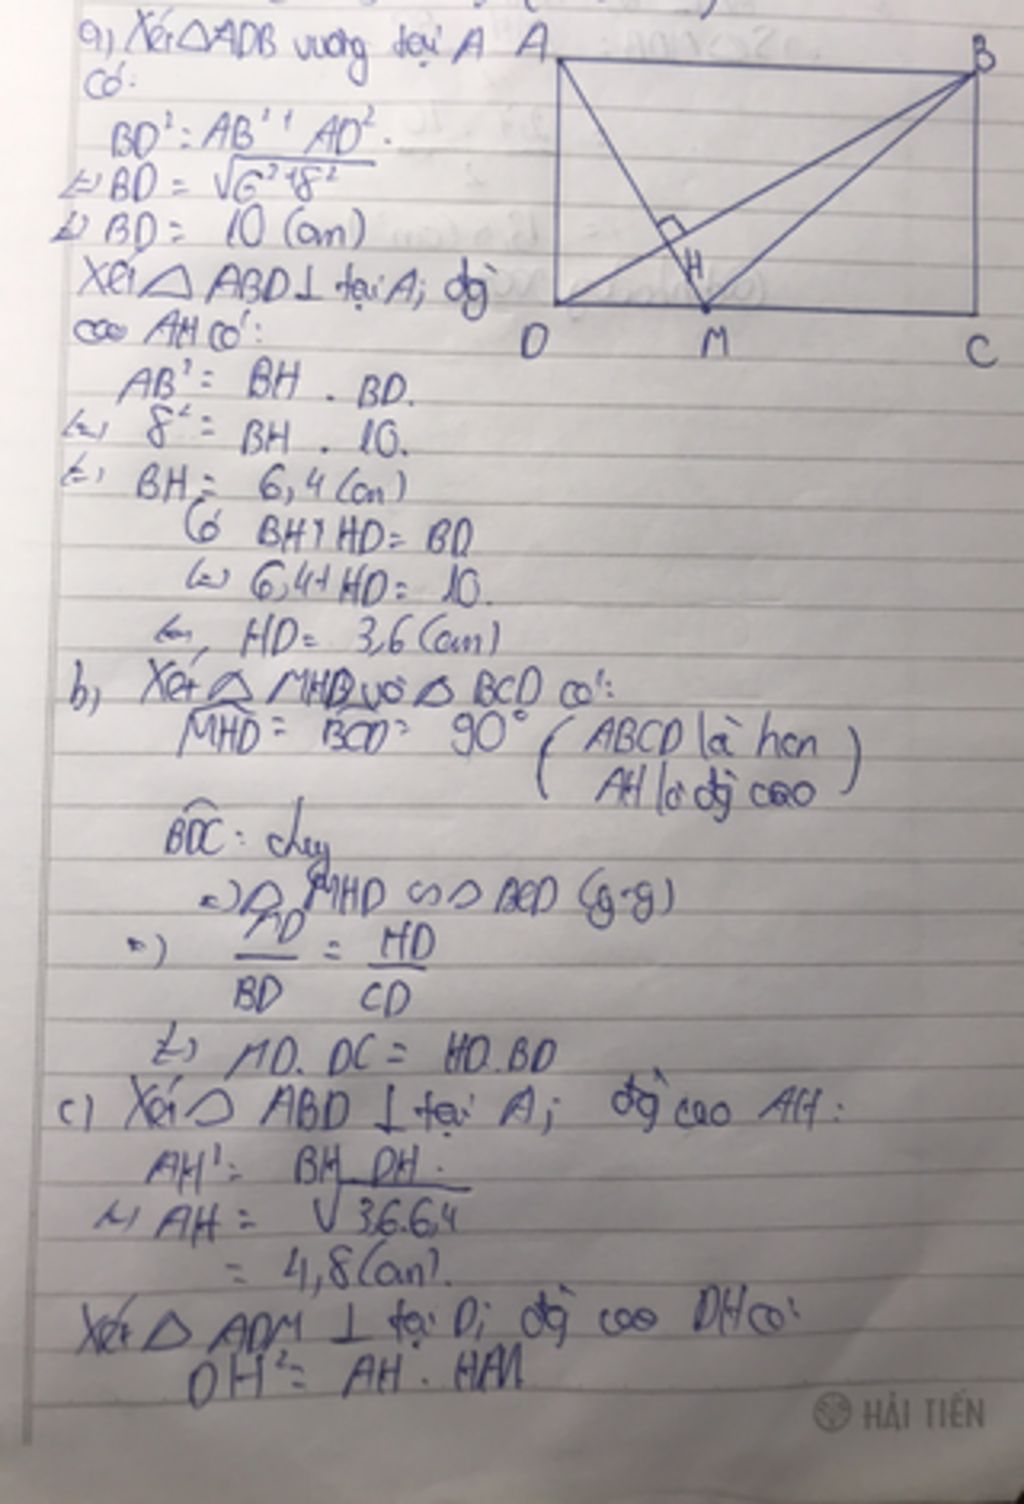 a) Xét △ADB vuông tại A
có:
BD² = AB² + AD².
⇔ BD = √6²+8²
⇔ BD = 10 (cm)
Xét △ ABD ⊥ tại A; đg̀
cao AH có:
AB² = BH . BD.
⇔ 8² = BH . 10.
⇔ BH = 6,4 (cm)
Có BH + HD = BD
⇔ 6,4 + HD = 10.
⇔ HD = 3,6 (cm)
A
B
H
D
M
C
b) Xét △ MHD và △ BCD có:
MHD = BCD = 90° ( ABCD là hcn
AH là đg̀ cao )
BDC: chung
=> △ MHD ∽ △ BCD (g-g)
=> MD/BD = HD/CD
⇔ MD. DC = HD.BD
c) Xét △ ABD ⊥ tại A; đg̀ cao AH:
AH² = BH . DH.
⇔ AH = √3,6.6,4
= 4,8 (cm).
Xét △ ADM ⊥ tại D; đg̀ cao DH có:
DH² = AH . HM
HẢI TIẾN